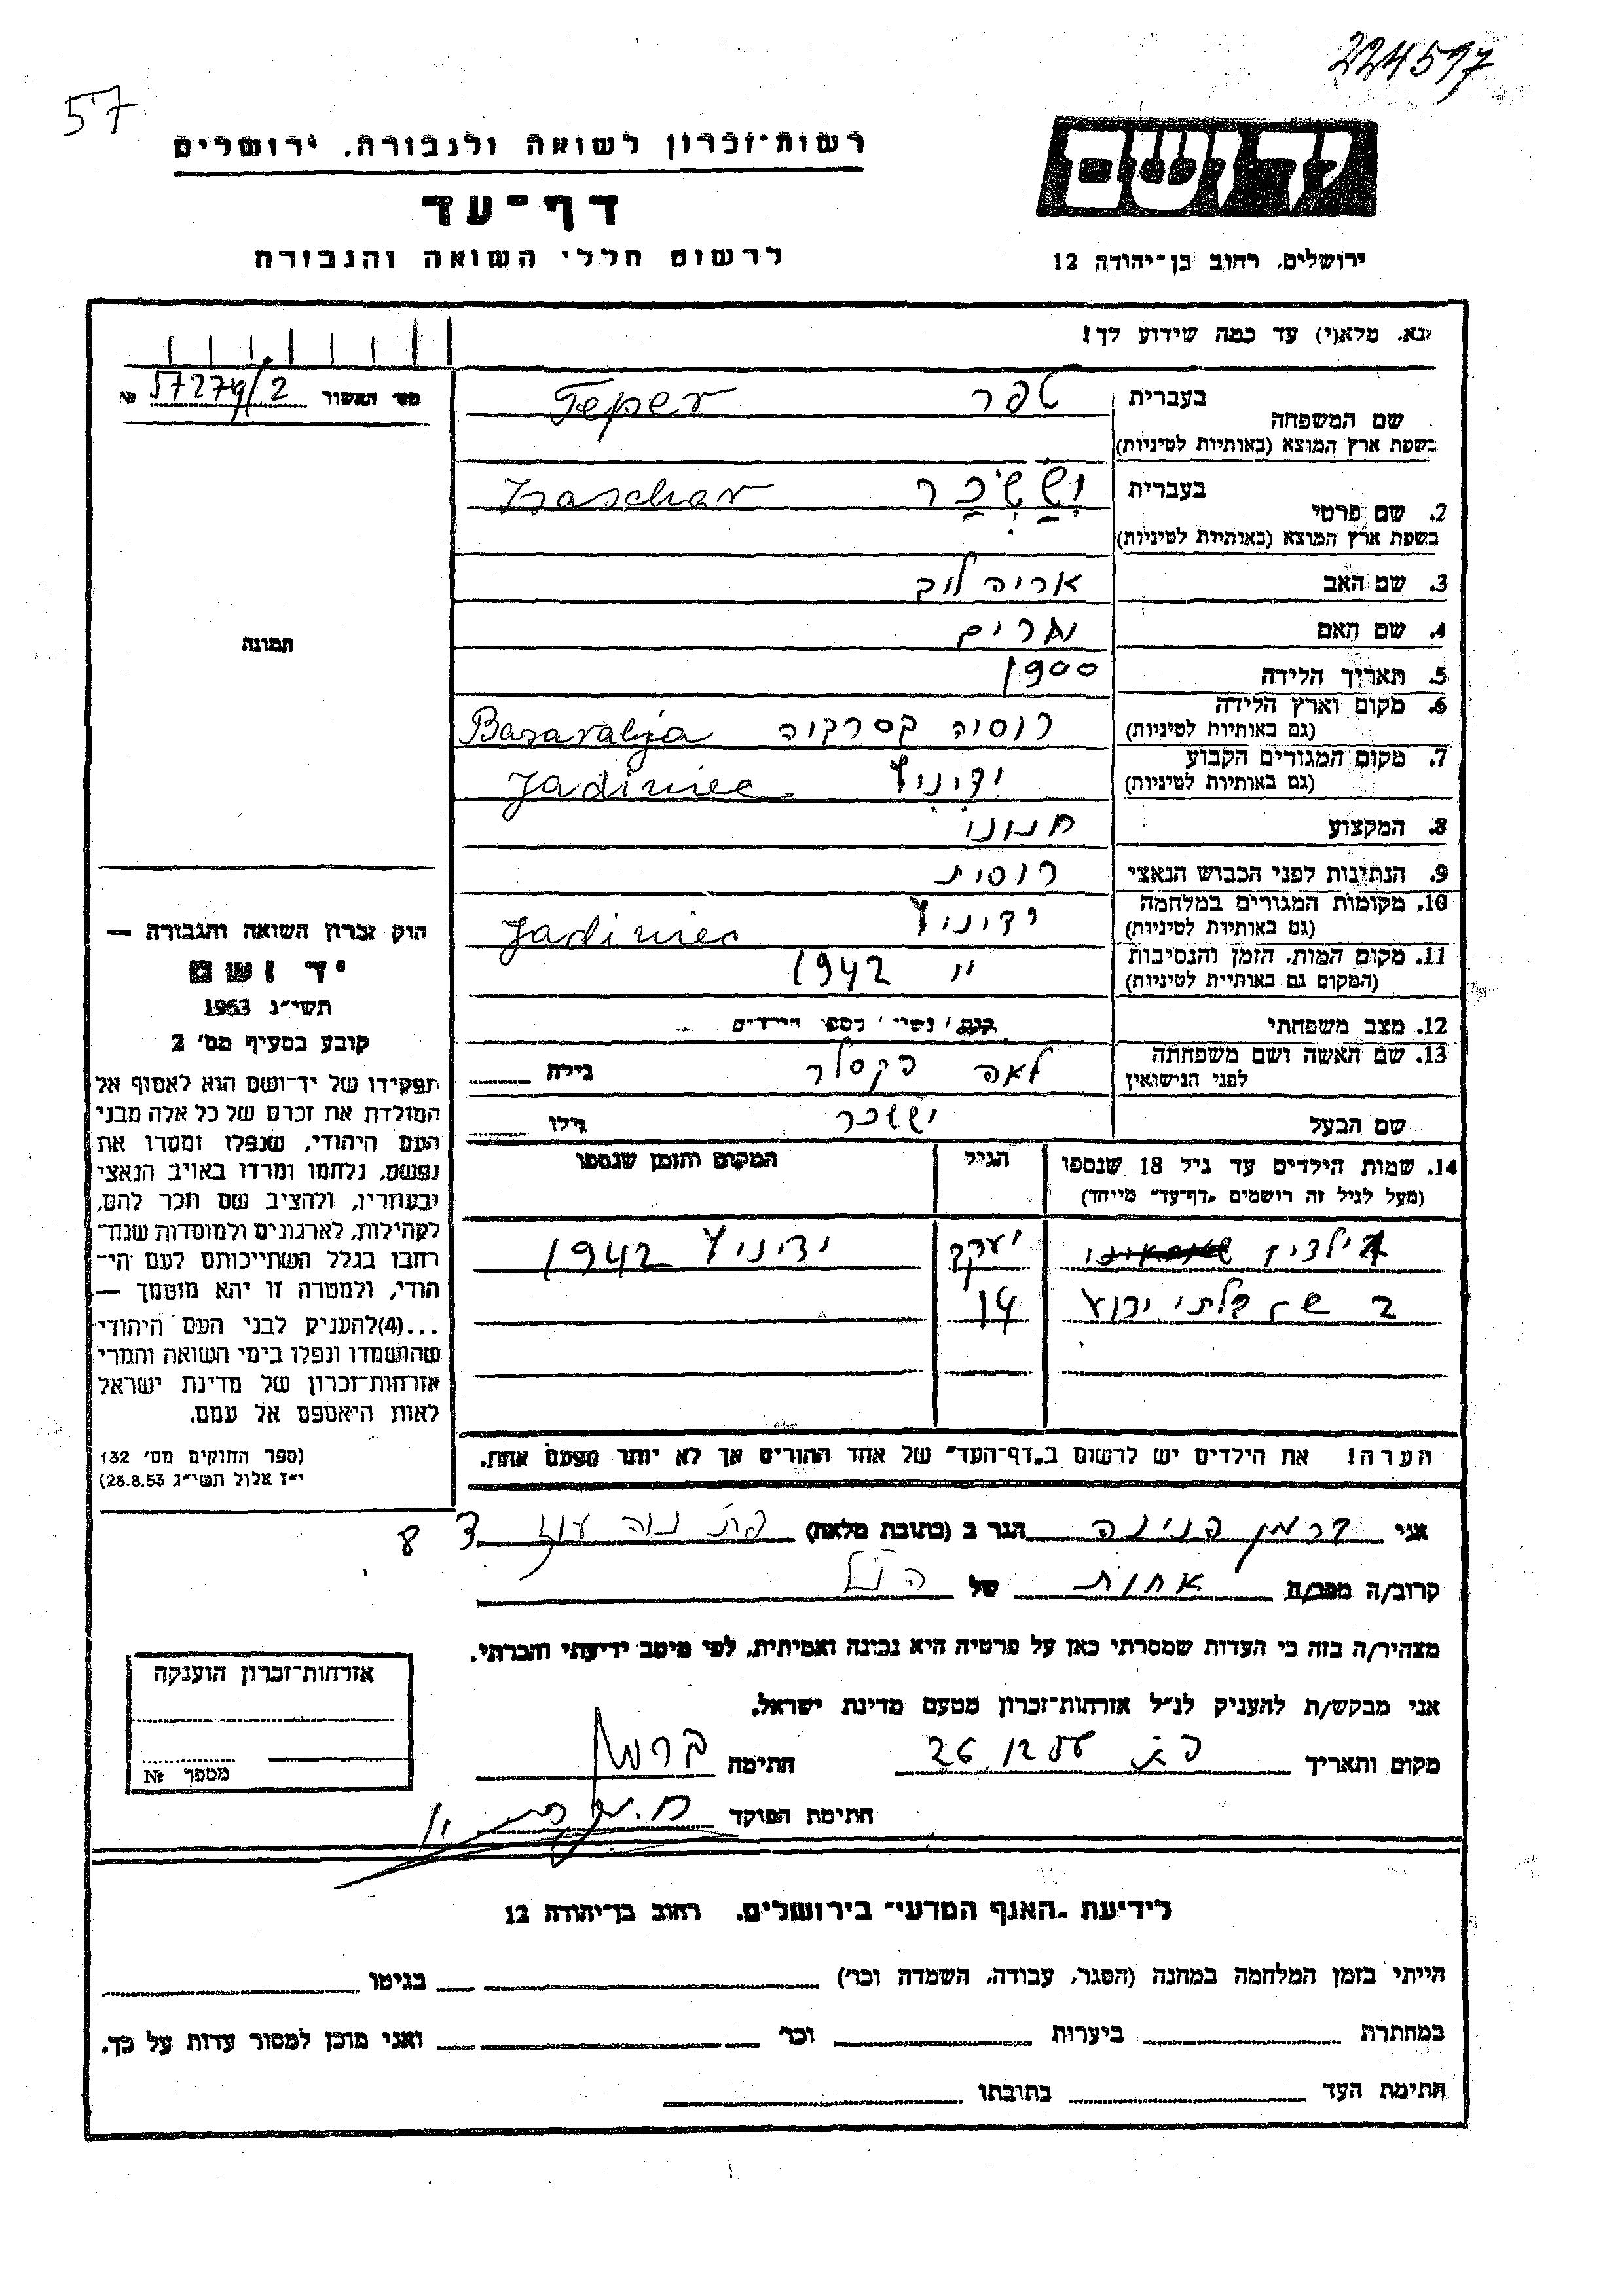 224597
57
רשות־זכרון לשואה ולגבורה, ירושלים
דף־עד
לרשום חללי השואה והגבורה
יד ושם
ירושלים, רחוב בן־יהודה 12
נא, מלא(י) עד כמה שידוע לך!
מס' האשור 57279/2 №
בעברית טפר Teper
שם המשפחה
בשפת ארץ המוצא (באותיות לטיניות)
בעברית יִשָּׂשכָר Isaschar
2. שם פרטי
בשפת ארץ המוצא (באותיות לטיניות)
3. שם האב אריה לוב
4. שם האם מרים
5. תאריך הלידה 1900
6. מקום וארץ הלידה רוסיה Basarabja
(גם באותיות לטיניות)
7. מקום המגורים הקבוע ידיניץ Jadiniec
(גם באותיות לטיניות)
8. המקצוע חנוני
9. הנתינות לפני הכבוש הנאצי רוסית
10. מקומות המגורים במלחמה ידיניץ Jadiniec
(גם באותיות לטיניות)
11. מקום המות, הזמן והנסיבות " 1942
(המקום גם באותיות לטיניות)
12. מצב משפחתי רווק / נשוי / מספר הילדים
13. שם האשה ושם משפחתה לאה בקסלר גילה
לפני הנישואין
שם הבעל יששכר גילו
14. שמות הילדים עד גיל 18 שנספו הגיל המקום והזמן שנספו
(מעל לגיל זה רושמים "דף־עד" מיוחד)
ילדים יעקב ידיניץ 1942
2 שם בלתי ידוע 14
הערה! את הילדים יש לרשום ב"דף־העד" של אחד ההורים אך לא יותר מפעם אחת.
תמונה
חוק זכרון השואה והגבורה —
יד ושם
תשי"ג 1953
קובע בסעיף מס' 2
תפקידו של יד־ושם הוא לאסוף אל
המולדת את זכרם של כל אלה מבני
העם היהודי, שנפלו ומסרו את
נפשם, נלחמו ומרדו באויב הנאצי
ובעוזריו, ולהציב שם וזכר להם,
לקהילות, לארגונים ולמוסדות שנח־
רבו בגלל השתייכותם לעם הי־
הודי, ולמטרה זו יהא מוסמך —
...(4)להעניק לבני העם היהודי
שהושמדו ונפלו בימי השואה והמרי
אזרחות־זכרון של מדינת ישראל
לאות היאספם אל עמם.
(ספר החוקים מס' 132
י"ז אלול תשי"ג 28.8.53)
אני ברמן פנינה הגר ב (כתובת מלאה) פת נוה עוז 8
קרוב/ה מכר/ה אחות של הנ"ל
מצהיר/ה בזה כי העדות שמסרתי כאן על פרטיה היא נכונה ואמיתית, לפי מיטב ידיעתי והכרתי.
אני מבקש/ת להעניק לנ"ל אזרחות־זכרון מטעם מדינת ישראל.
מקום ותאריך פת 26.12.55 חתימה ברמן
חתימת הפוקד
אזרחות־זכרון הוענקה
מספר №
לידיעת "האגף המדעי" בירושלים, רחוב בן־יהודה 12
הייתי בזמן המלחמה במחנה (הסגר, עבודה, השמדה וכו') בגיטו
במחתרת ביערות וכו' ואני מוכן למסור עדות על כך.
חתימת העד כתובתו